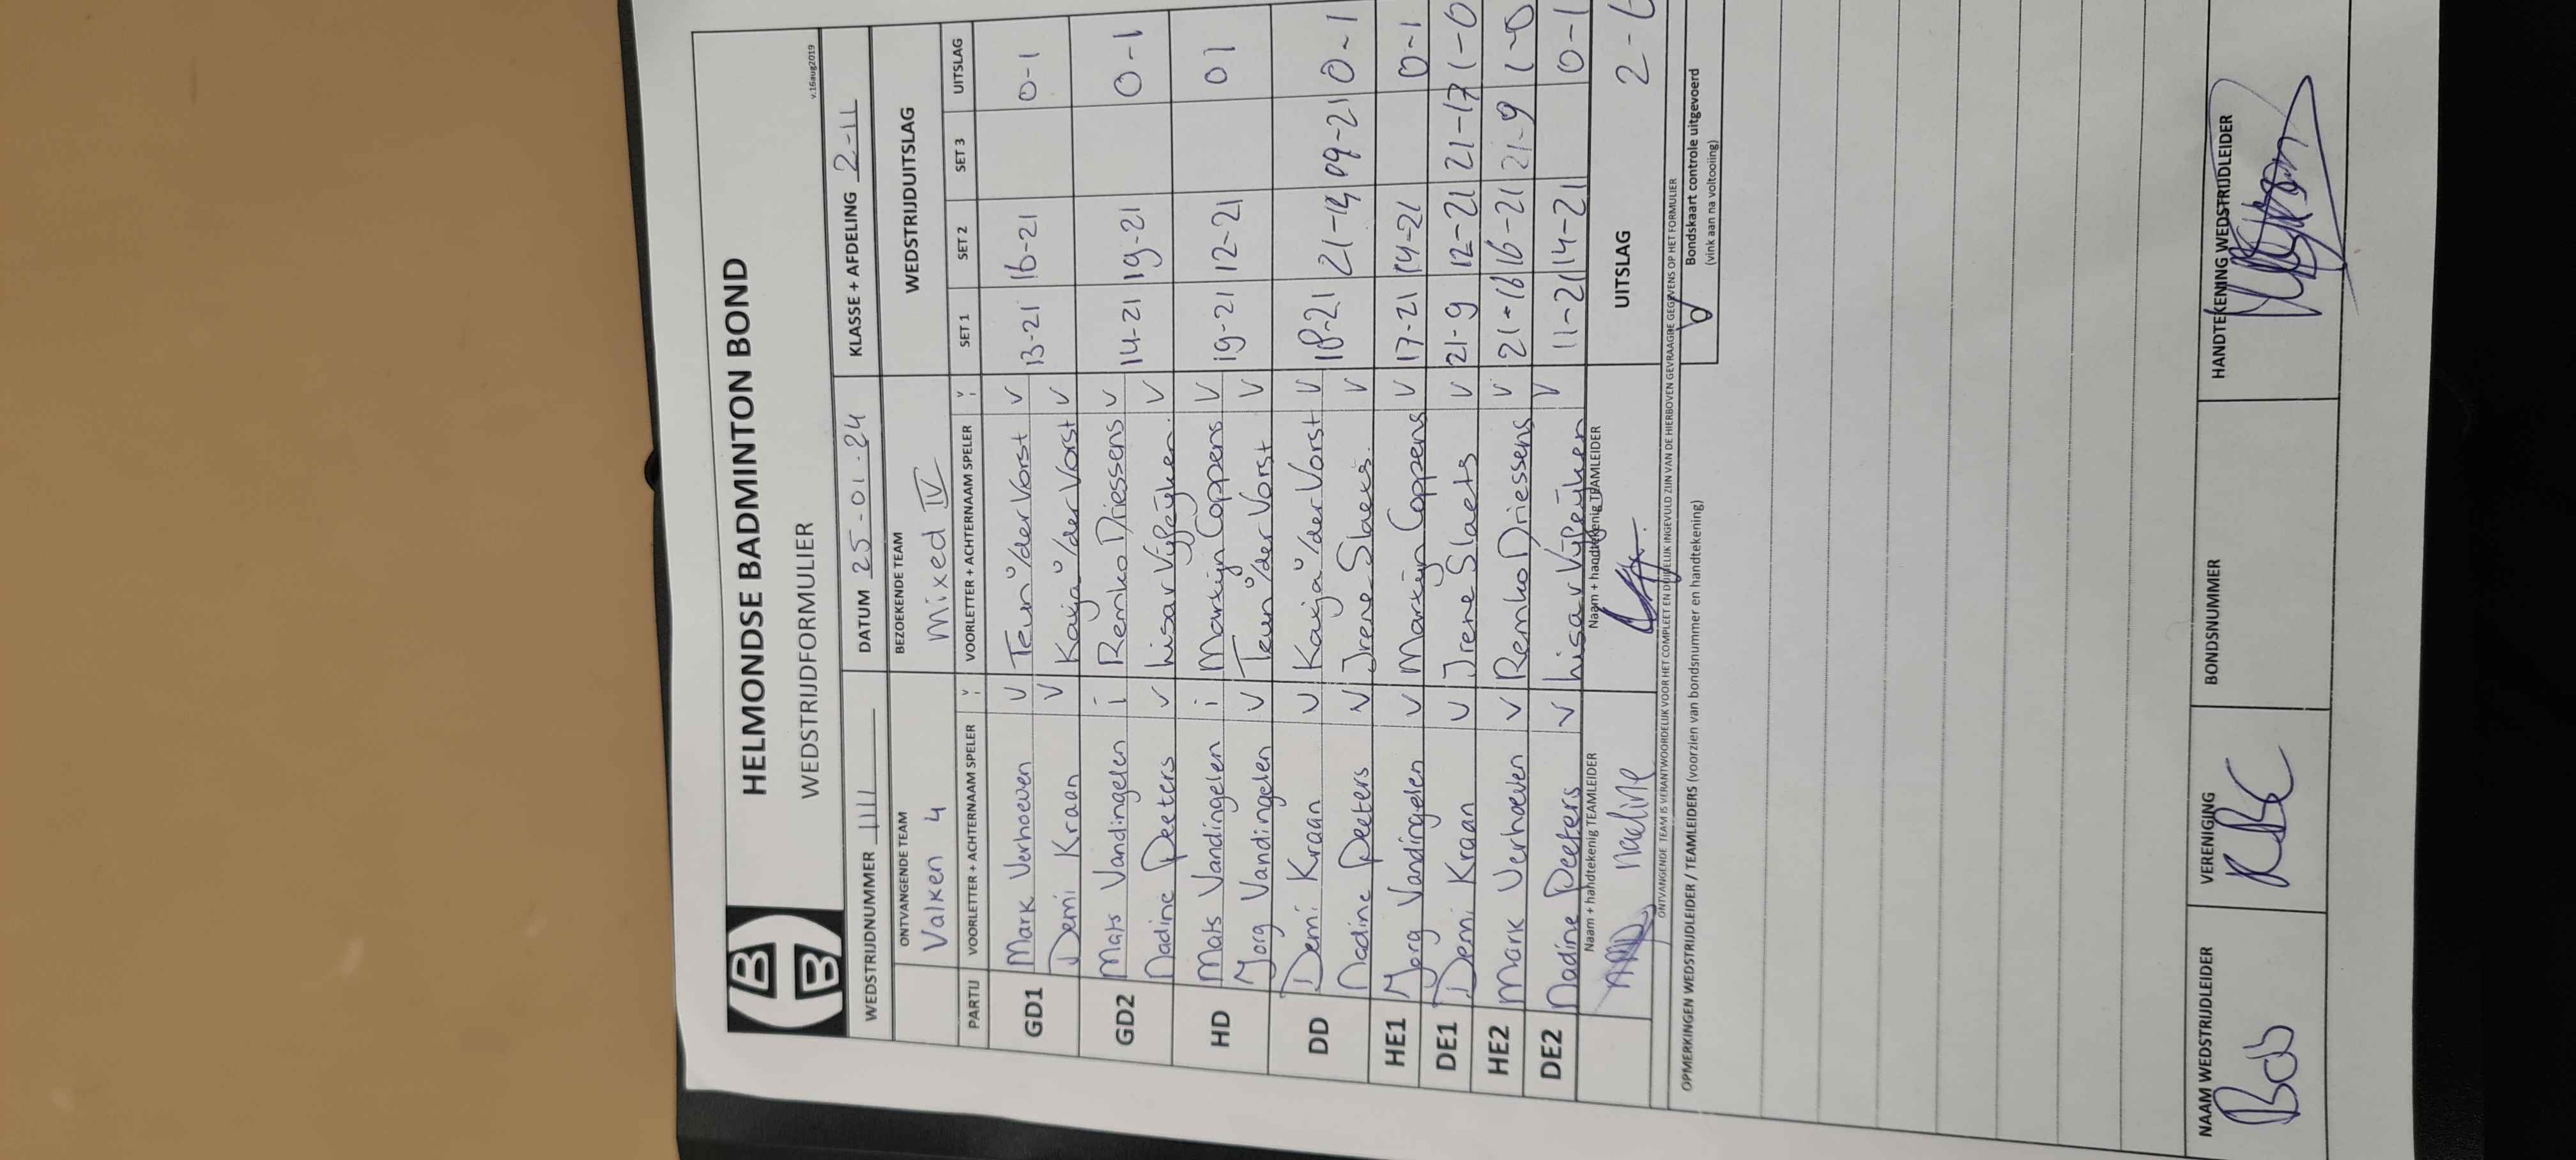 HELMONDSE BADMINTON BOND
WEDSTRIJDFORMULIER
v.16aug2019
WEDSTRIJDNUMMER 1111 DATUM 25-01-24 KLASSE + AFDELING 2-11
ONTVANGENDE TEAM BEZOEKENDE TEAM WEDSTRIJDUITSLAG
Valken 4 mixed IV
PARTIJ VOORLETTER + ACHTERNAAM SPELER V VOORLETTER + ACHTERNAAM SPELER V SET 1 SET 2 SET 3 UITSLAG
GD1 Mark Verhoeven V Teun v/der Vorst V 13-21 16-21 0-1
Demi Kraan V Kaija v/der Vorst V
GD2 Mats Vandingelen i Remko Driessens V 14-21 19-21 0-1
Nadine Peeters V Lisa v Vijfeijken V
HD Mats Vandingelen i Martijn Coppens V 19-21 12-21 01
Jorg Vandingelen V Teun v/der Vorst V
DD Demi Kraan V Kaija v/der Vorst V 18-21 21-14 09-21 0-1
Nadine Peeters V Irene Slaets V
HE1 Jorg Vandingelen V Martijn Coppens V 17-21 14-21 0-1
DE1 Demi Kraan V Irene Slaets V 21-9 12-21 21-17 1-0
HE2 Mark Verhoeven V Remko Driessens V 21-16 16-21 21-9 1-0
DE2 Nadine Peeters V Lisa v Vijfeijken V 11-21 14-21 0-1
Naam + handtekenig TEAMLEIDER Naam + handtekenig TEAMLEIDER UITSLAG 2-6
Nadine
ONTVANGENDE TEAM IS VERANTWOORDELIJK VOOR HET COMPLEET EN DUIDELIJK INGEVULD ZIJN VAN DE HIERBOVEN GEVRAAGDE GEGEVENS OP HET FORMULIER
OPMERKINGEN WEDSTRIJDLEIDER / TEAMLEIDERS (voorzien van bondsnummer en handtekening) Bondskaart controle uitgevoerd
(vink aan na voltooiing)
NAAM WEDSTRIJDLEIDER VERENIGING BONDSNUMMER HANDTEKENING WEDSTRIJDLEIDER
Bob RBC